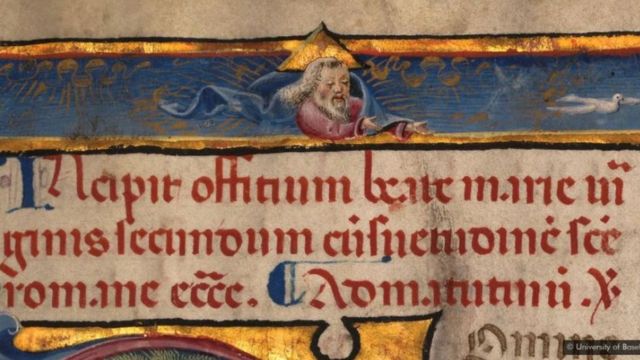 INcipit offitium beate marie uir̃
ginis secundum cũsuetudinẽ sc̃e
romane ecc̃e. ¶ Ad matutinũ. ꝟ
© University of